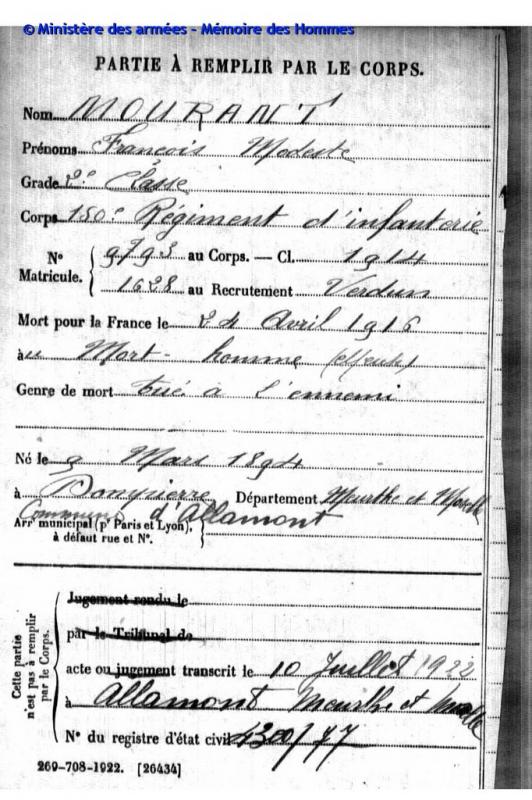 © Ministère des armées - Mémoire des Hommes
PARTIE À REMPLIR PAR LE CORPS.
Nom MOURANT
Prénoms François Modeste
Grade 2e Classe
Corps 150e Régiment d'infanterie
N° Matricule. 9793 au Corps. — Cl. 1914
1628 au Recrutement Verdun
Mort pour la France le 24 Avril 1916
au Mort-homme (Meuse)
Genre de mort tué à l'ennemi
Né le 9 Mars 1894
à Dompierre Département Meurthe et Moselle
Commune d'Allamont
Arr municipal (pr Paris et Lyon),
à défaut rue et N°.
Cette partie n'est pas à remplir par le Corps.
Jugement rendu le
par le Tribunal de
acte ou jugement transcrit le 10 Juillet 1922
à Allamont Meurthe et Moselle
N° du registre d'état civil 4300/77
269-708-1922. [26434]